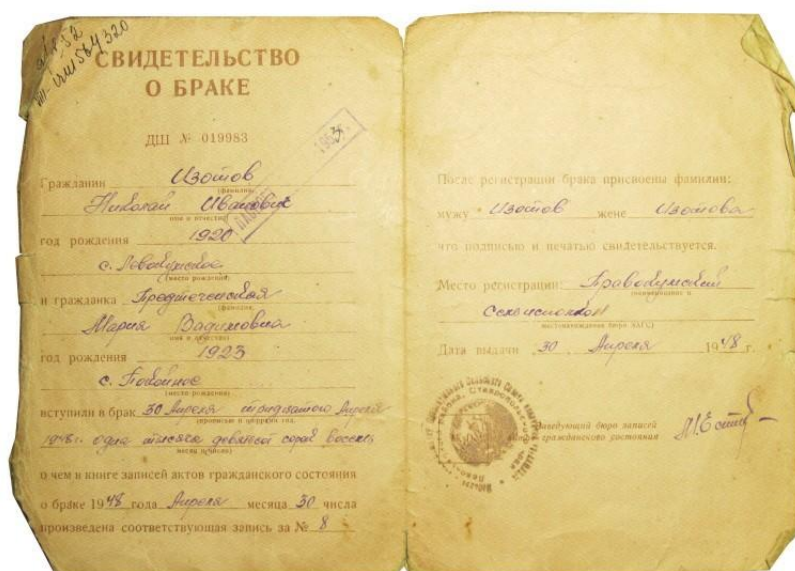 СВИДЕТЕЛЬСТВО
О БРАКЕ
ДШ № 019983
Гражданин Изотов
(фамилия)
Николай Иванович
имя и отчество
год рождения 1920
с. Левокумское
(место рождения)
и гражданка Предтеченская
(фамилия)
Мария Вадимовна
имя и отчество
год рождения 1923
с. Покойное
(место рождения)
вступили в брак 30 Апреля тридцатого Апреля
(прописью и цифрами год,
1948 г. одна тысяча девятьсот сорок восемь
месяц и число)
о чем в книге записей актов гражданского состояния
о браке 1948 года Апреля месяца 30 числа
произведена соответствующая запись за № 8
После регистрации брака присвоены фамилии:
мужу Изотов жене Изотова
что подписью и печатью свидетельствуется.
Место регистрации: Правокумский
(наименование и
местонахождение бюро ЗАГС)
Дата выдачи 30 Апреля 1948 г.
Заведующий бюро записей
актов гражданского состояния